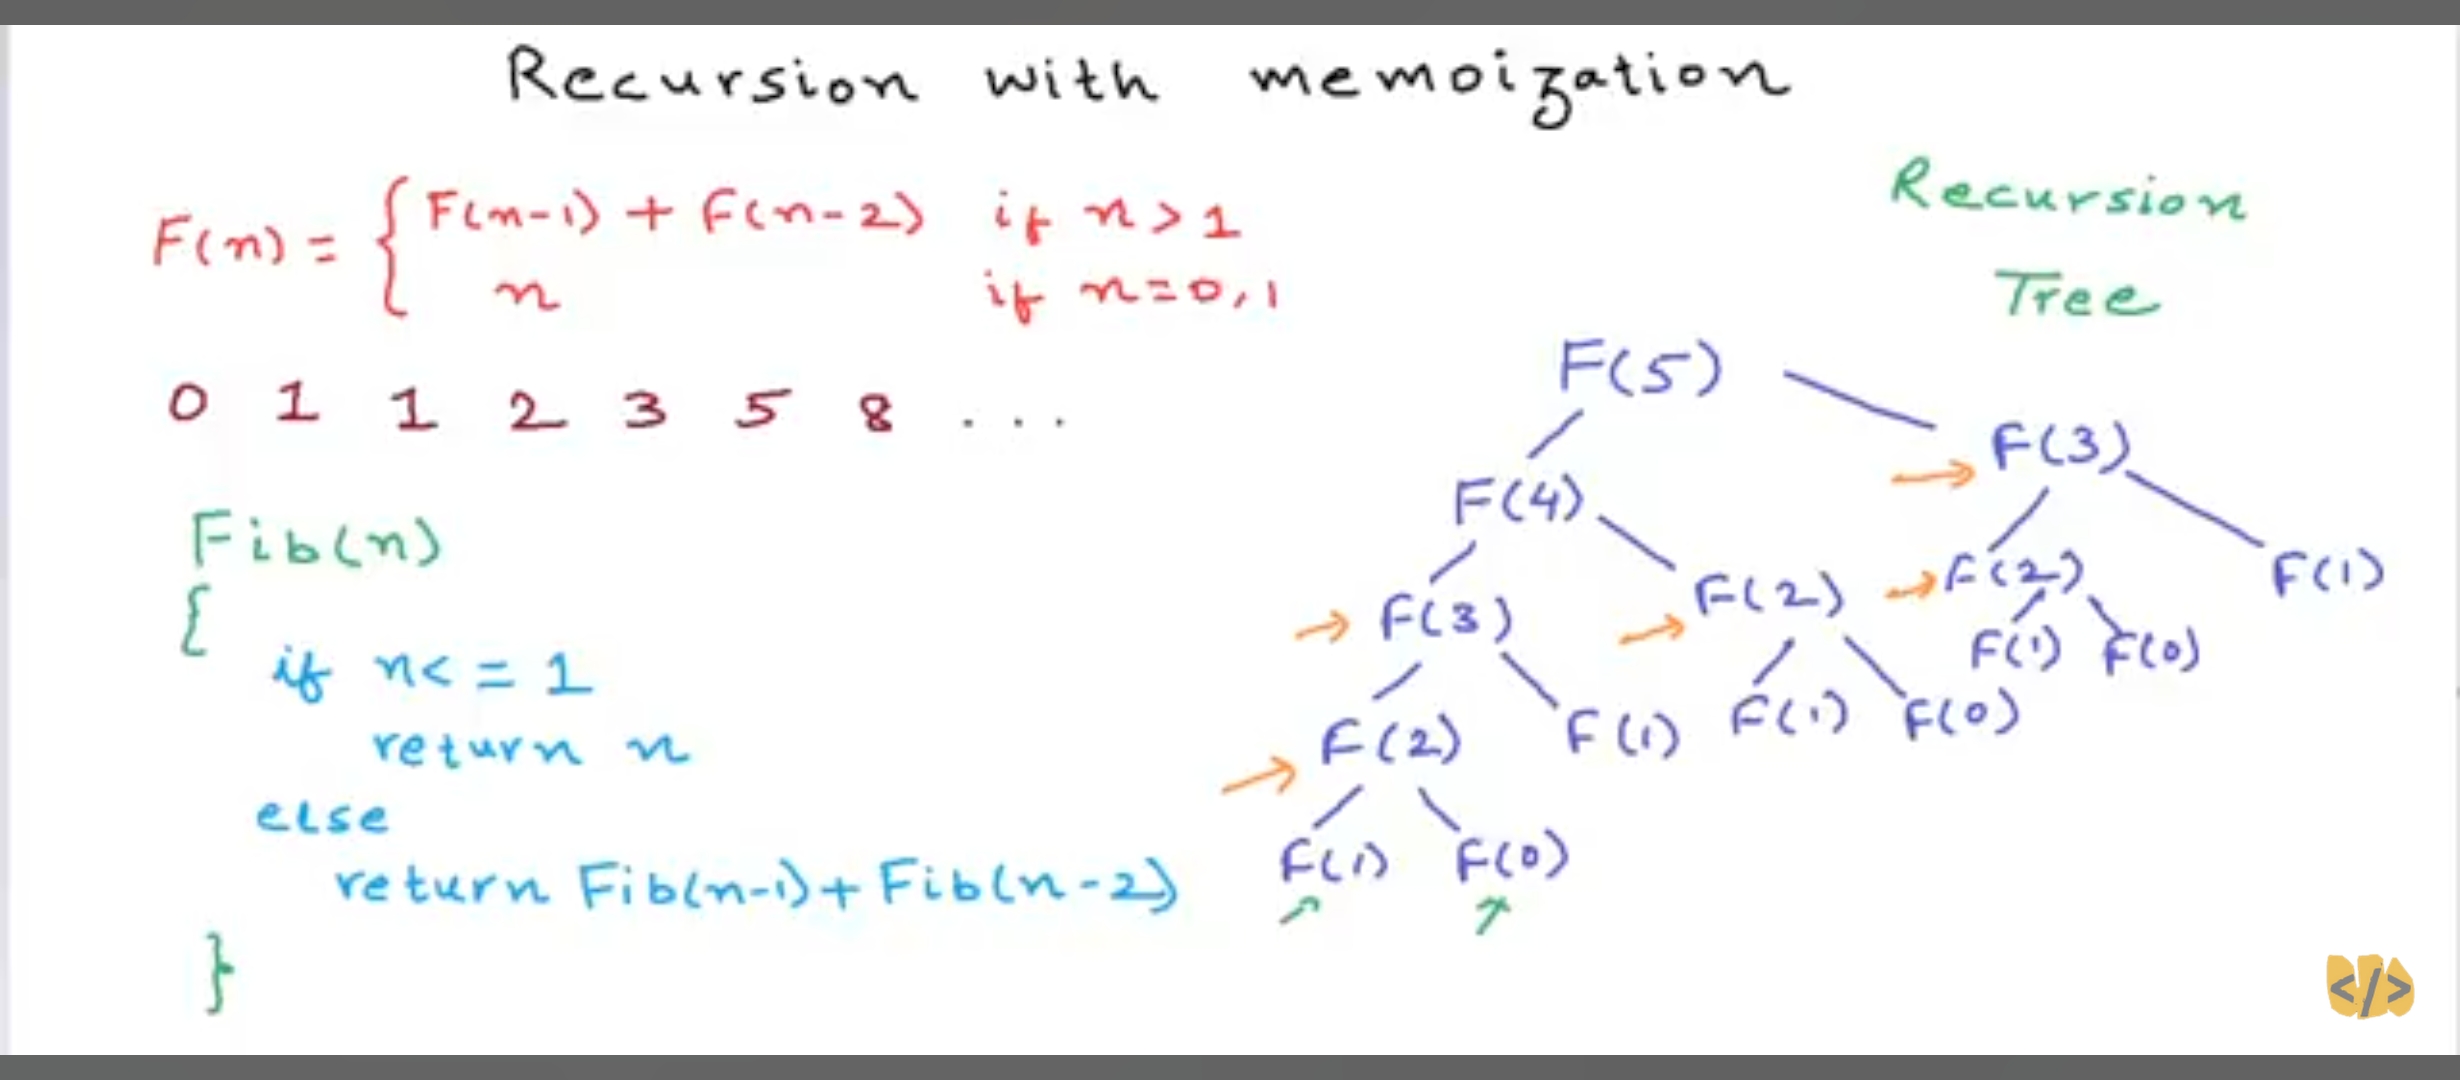 Recursion with memoization
F(n) = { F(n-1) + F(n-2) if n > 1
n if n=0,1
0 1 1 2 3 5 8 ...
Fib(n)
{
if n<=1
return n
else
return Fib(n-1)+Fib(n-2)
}
Recursion
Tree
F(5)
F(4) F(3)
F(3) F(2) F(2) F(1)
F(2) F(1) F(1) F(0) F(1) F(0)
F(1) F(0)
</>